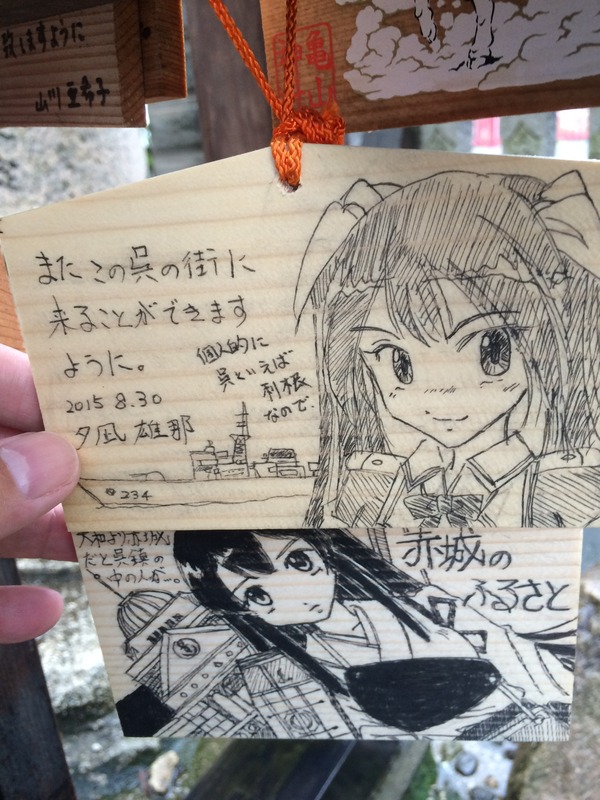 致しますように
山川 亜希子
亀山
またこの呉の街に
来ることができます
ように。
2015 8.30
夕凪 雄那
個人的に
呉といえば
利根
なので.
234
大和より赤城
だと呉鎮の
中の人が…
赤城の
ふるさと